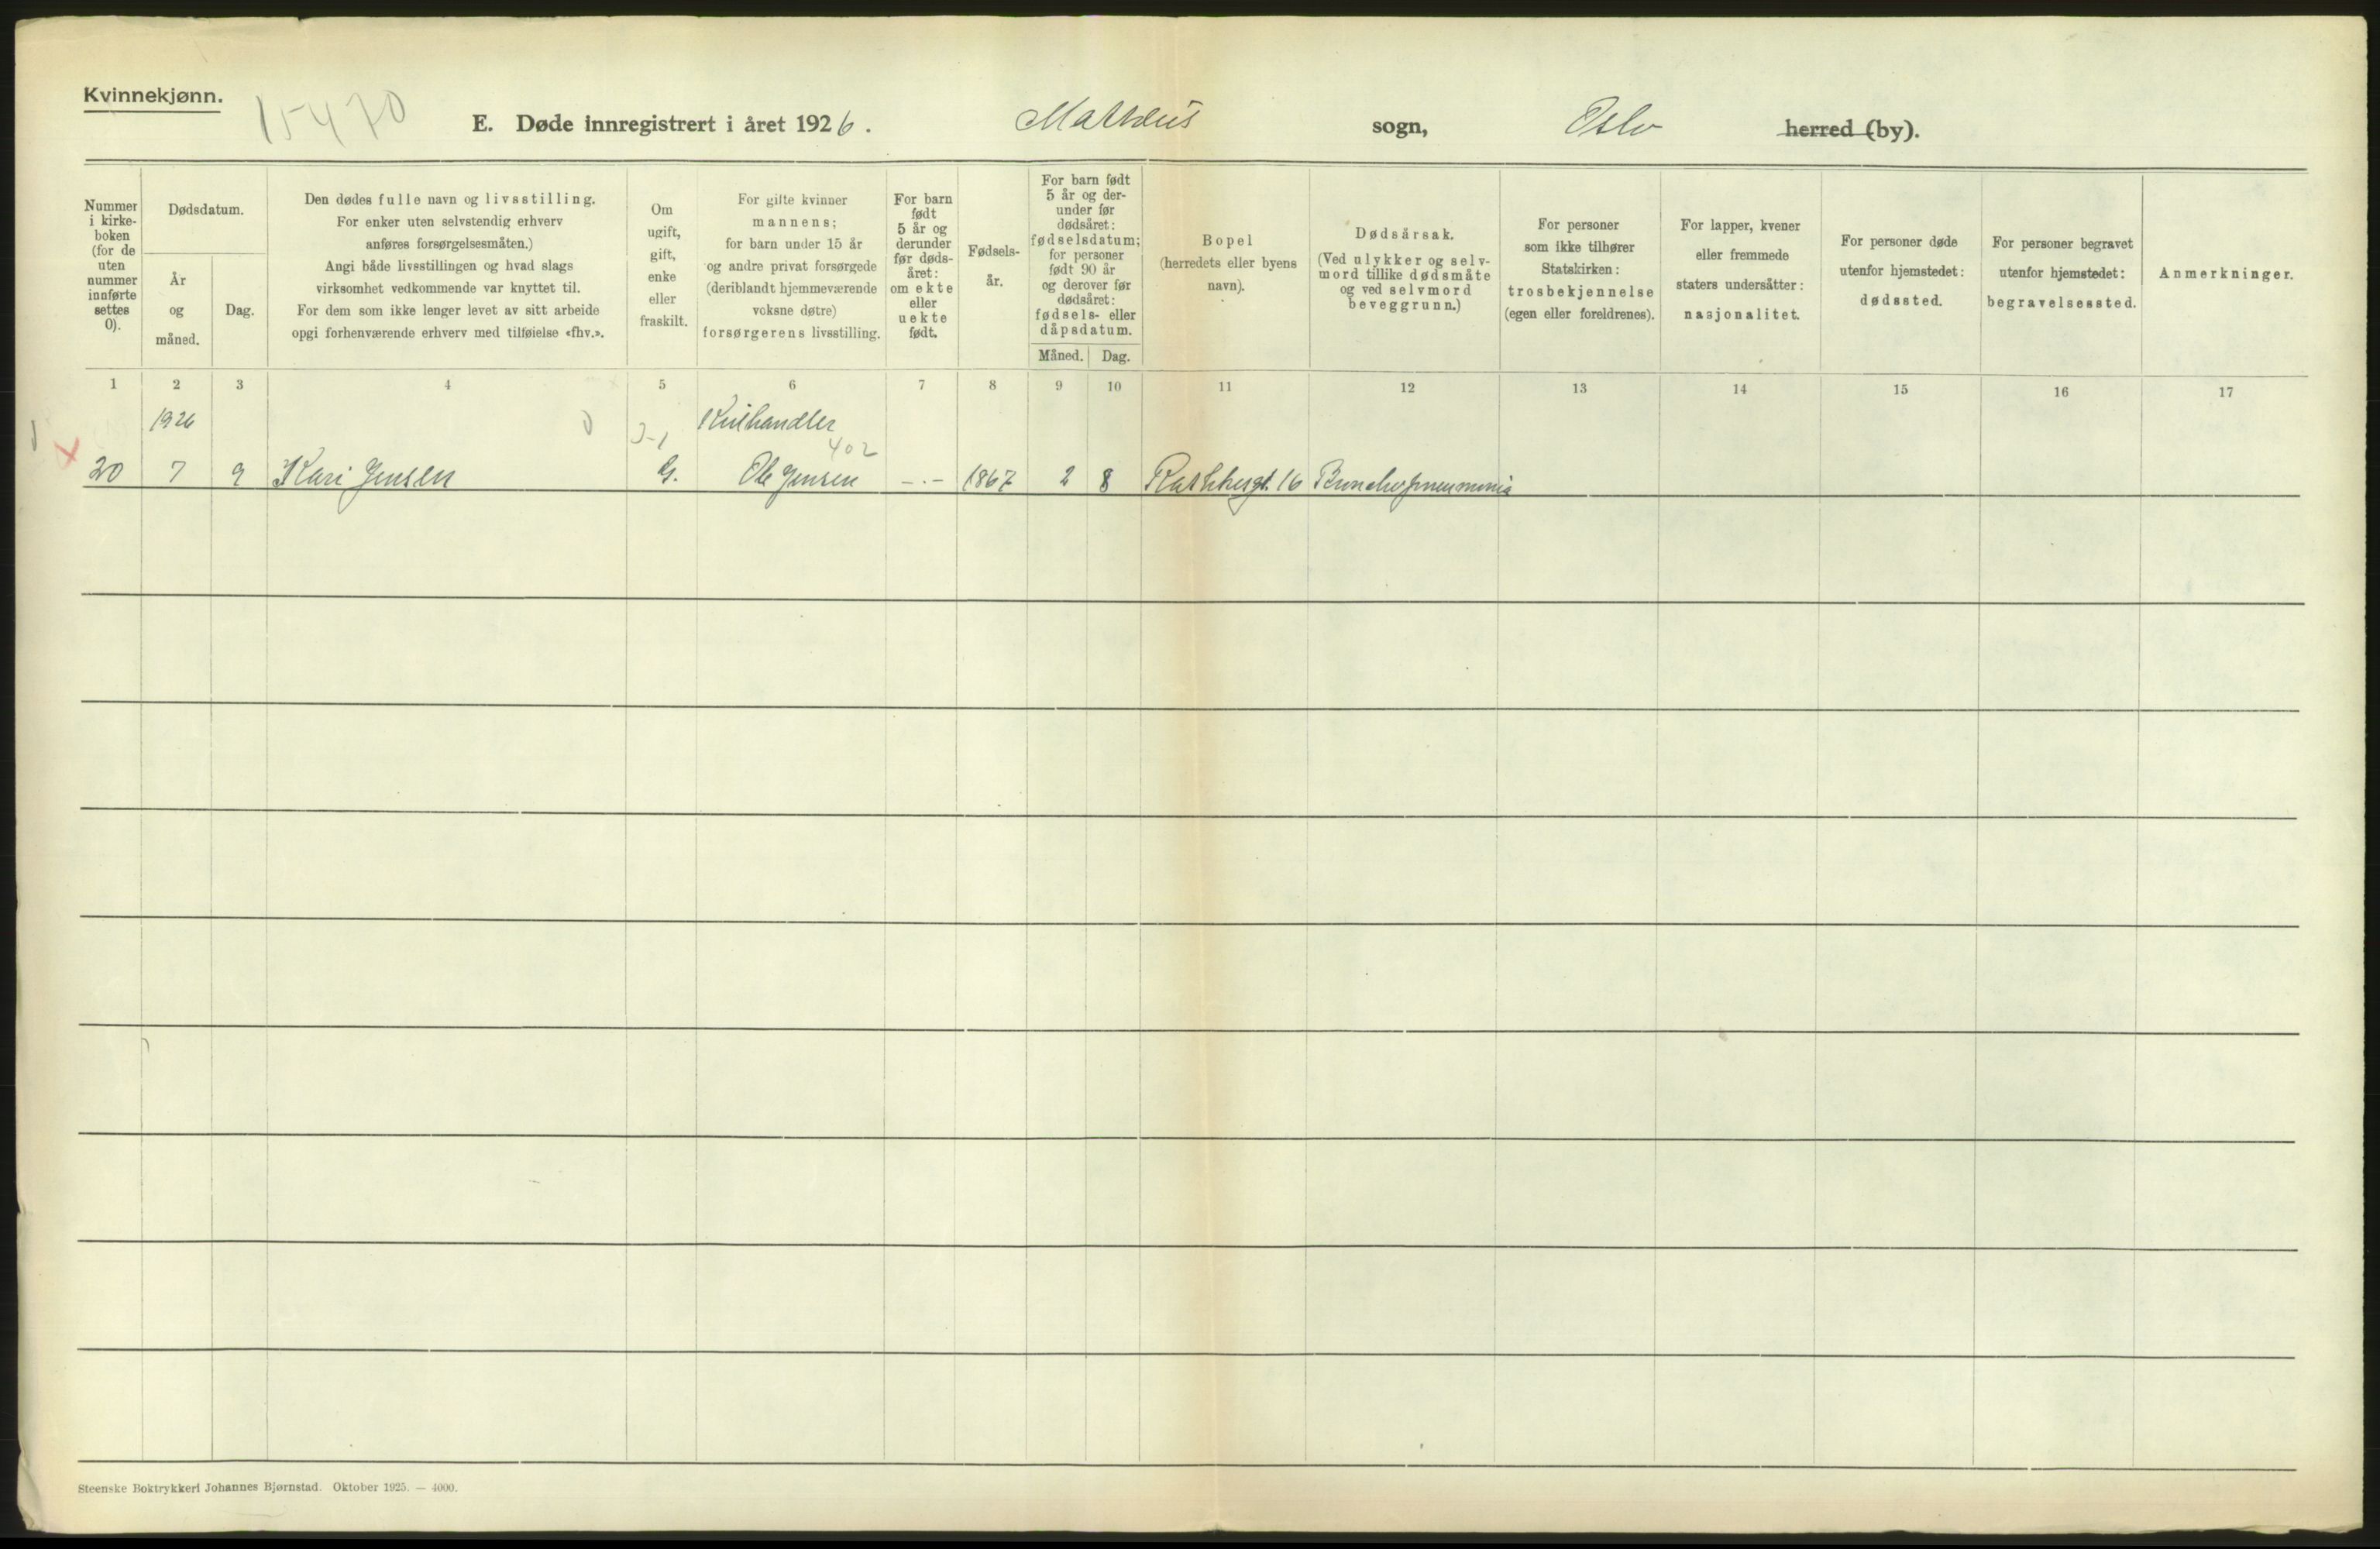 Kvinnekjønn.
15470
E. Døde innregistrert i året 1926. Matheus sogn, Oslo herred (by).
Nummer
i kirke-
boken
(for de
uten
nummer
innførte
settes
0).
Dødsdatum.
År
og
måned.
Dag.
Den dødes fulle navn og livsstilling.
For enker uten selvstendig erhverv
anføres forsørgelsesmåten.)
Angi både livsstillingen og hvad slags
virksomhet vedkommende var knyttet til.
For dem som ikke lenger levet av sitt arbeide
opgi forhenværende erhverv med tilføielse «fhv.».
Om
ugift,
gift,
enke
eller
fraskilt.
For gifte kvinner
mannens;
for barn under 15 år
og andre privat forsørgede
(deriblandt hjemmeværende
voksne døtre)
forsørgerens livsstilling.
For barn
født
5 år og
derunder
før døds-
året:
om ekte
eller
uekte
født.
Fødsels-
år.
For barn født
5 år og der-
under før
dødsåret:
fødselsdatum;
for personer
født 90 år
og derover før
dødsåret:
fødsels- eller
dåpsdatum.
Måned. Dag.
Bopel
(herredets eller byens
navn).
Dødsårsak.
(Ved ulykker og selv-
mord tillike dødsmåte
og ved selvmord
beveggrunn.)
For personer
som ikke tilhører
Statskirken:
trosbekjennelse
(egen eller foreldrenes).
For lapper, kvener
eller fremmede
staters undersåtter:
nasjonalitet.
For personer døde
utenfor hjemstedet:
dødssted.
For personer begravet
utenfor hjemstedet:
begravelsessted.
Anmerkninger.
1 2 3 4 5 6 7 8 9 10 11 12 13 14 15 16 17
1926 Kulhandler
402
20 7 9 Kari Jensen G. Ole Jensen -.- 1867 2 8 16 Bronchopneumonia
Steenske Boktrykkeri Johannes Bjørnstad. Oktober 1925. — 4000.